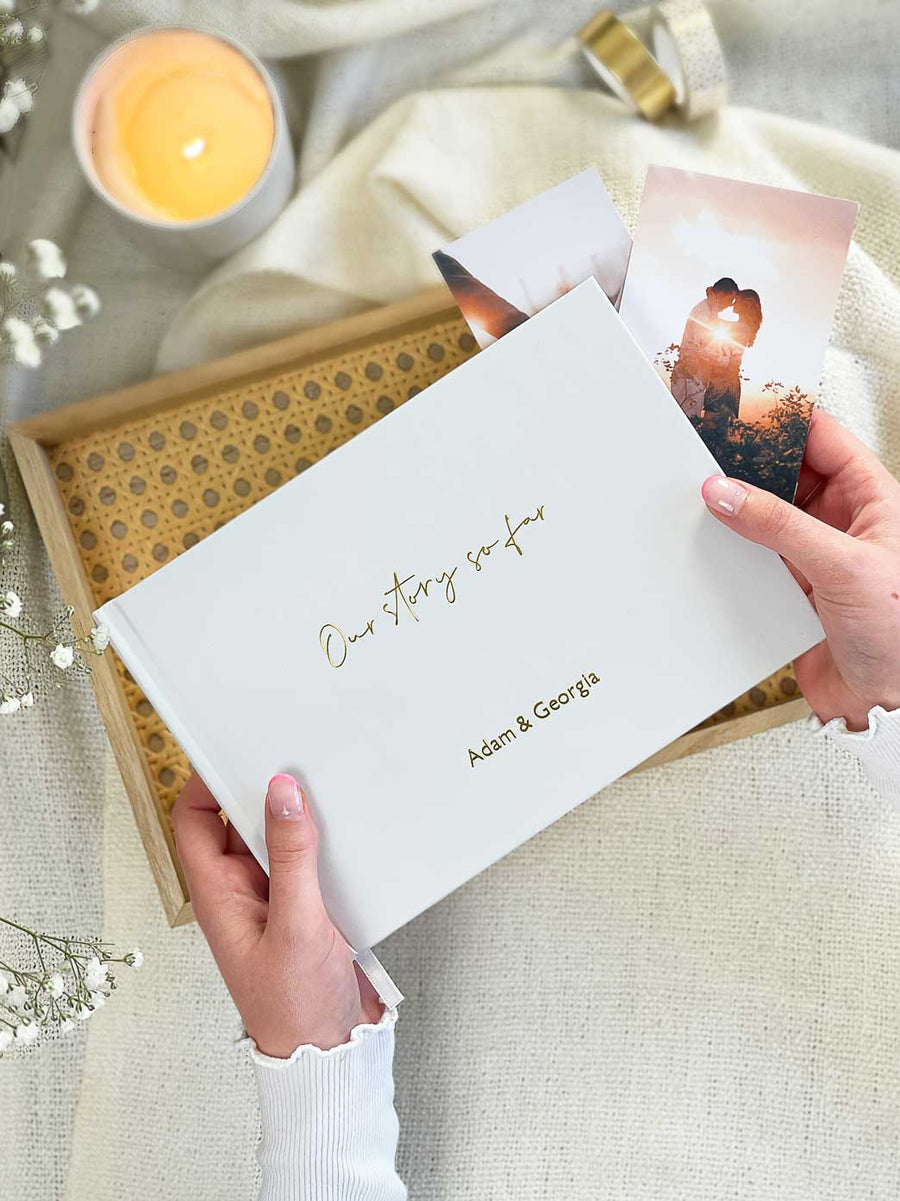 Our story so far
Adam & Georgia